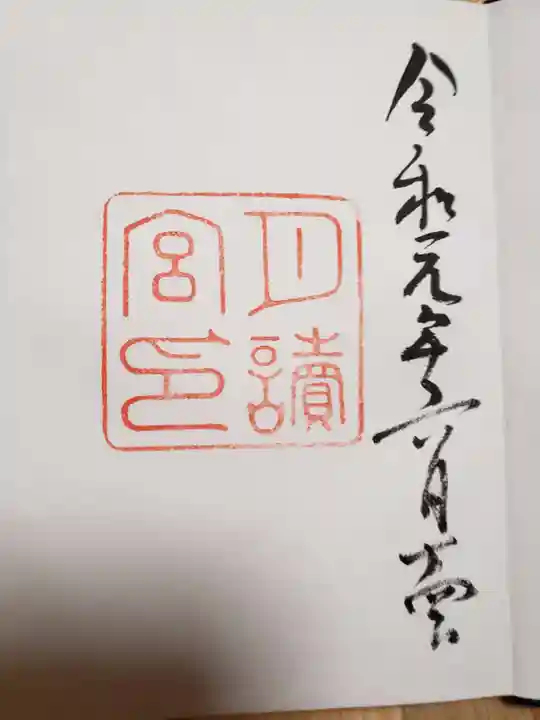 令和元年六月
月讀
宮印